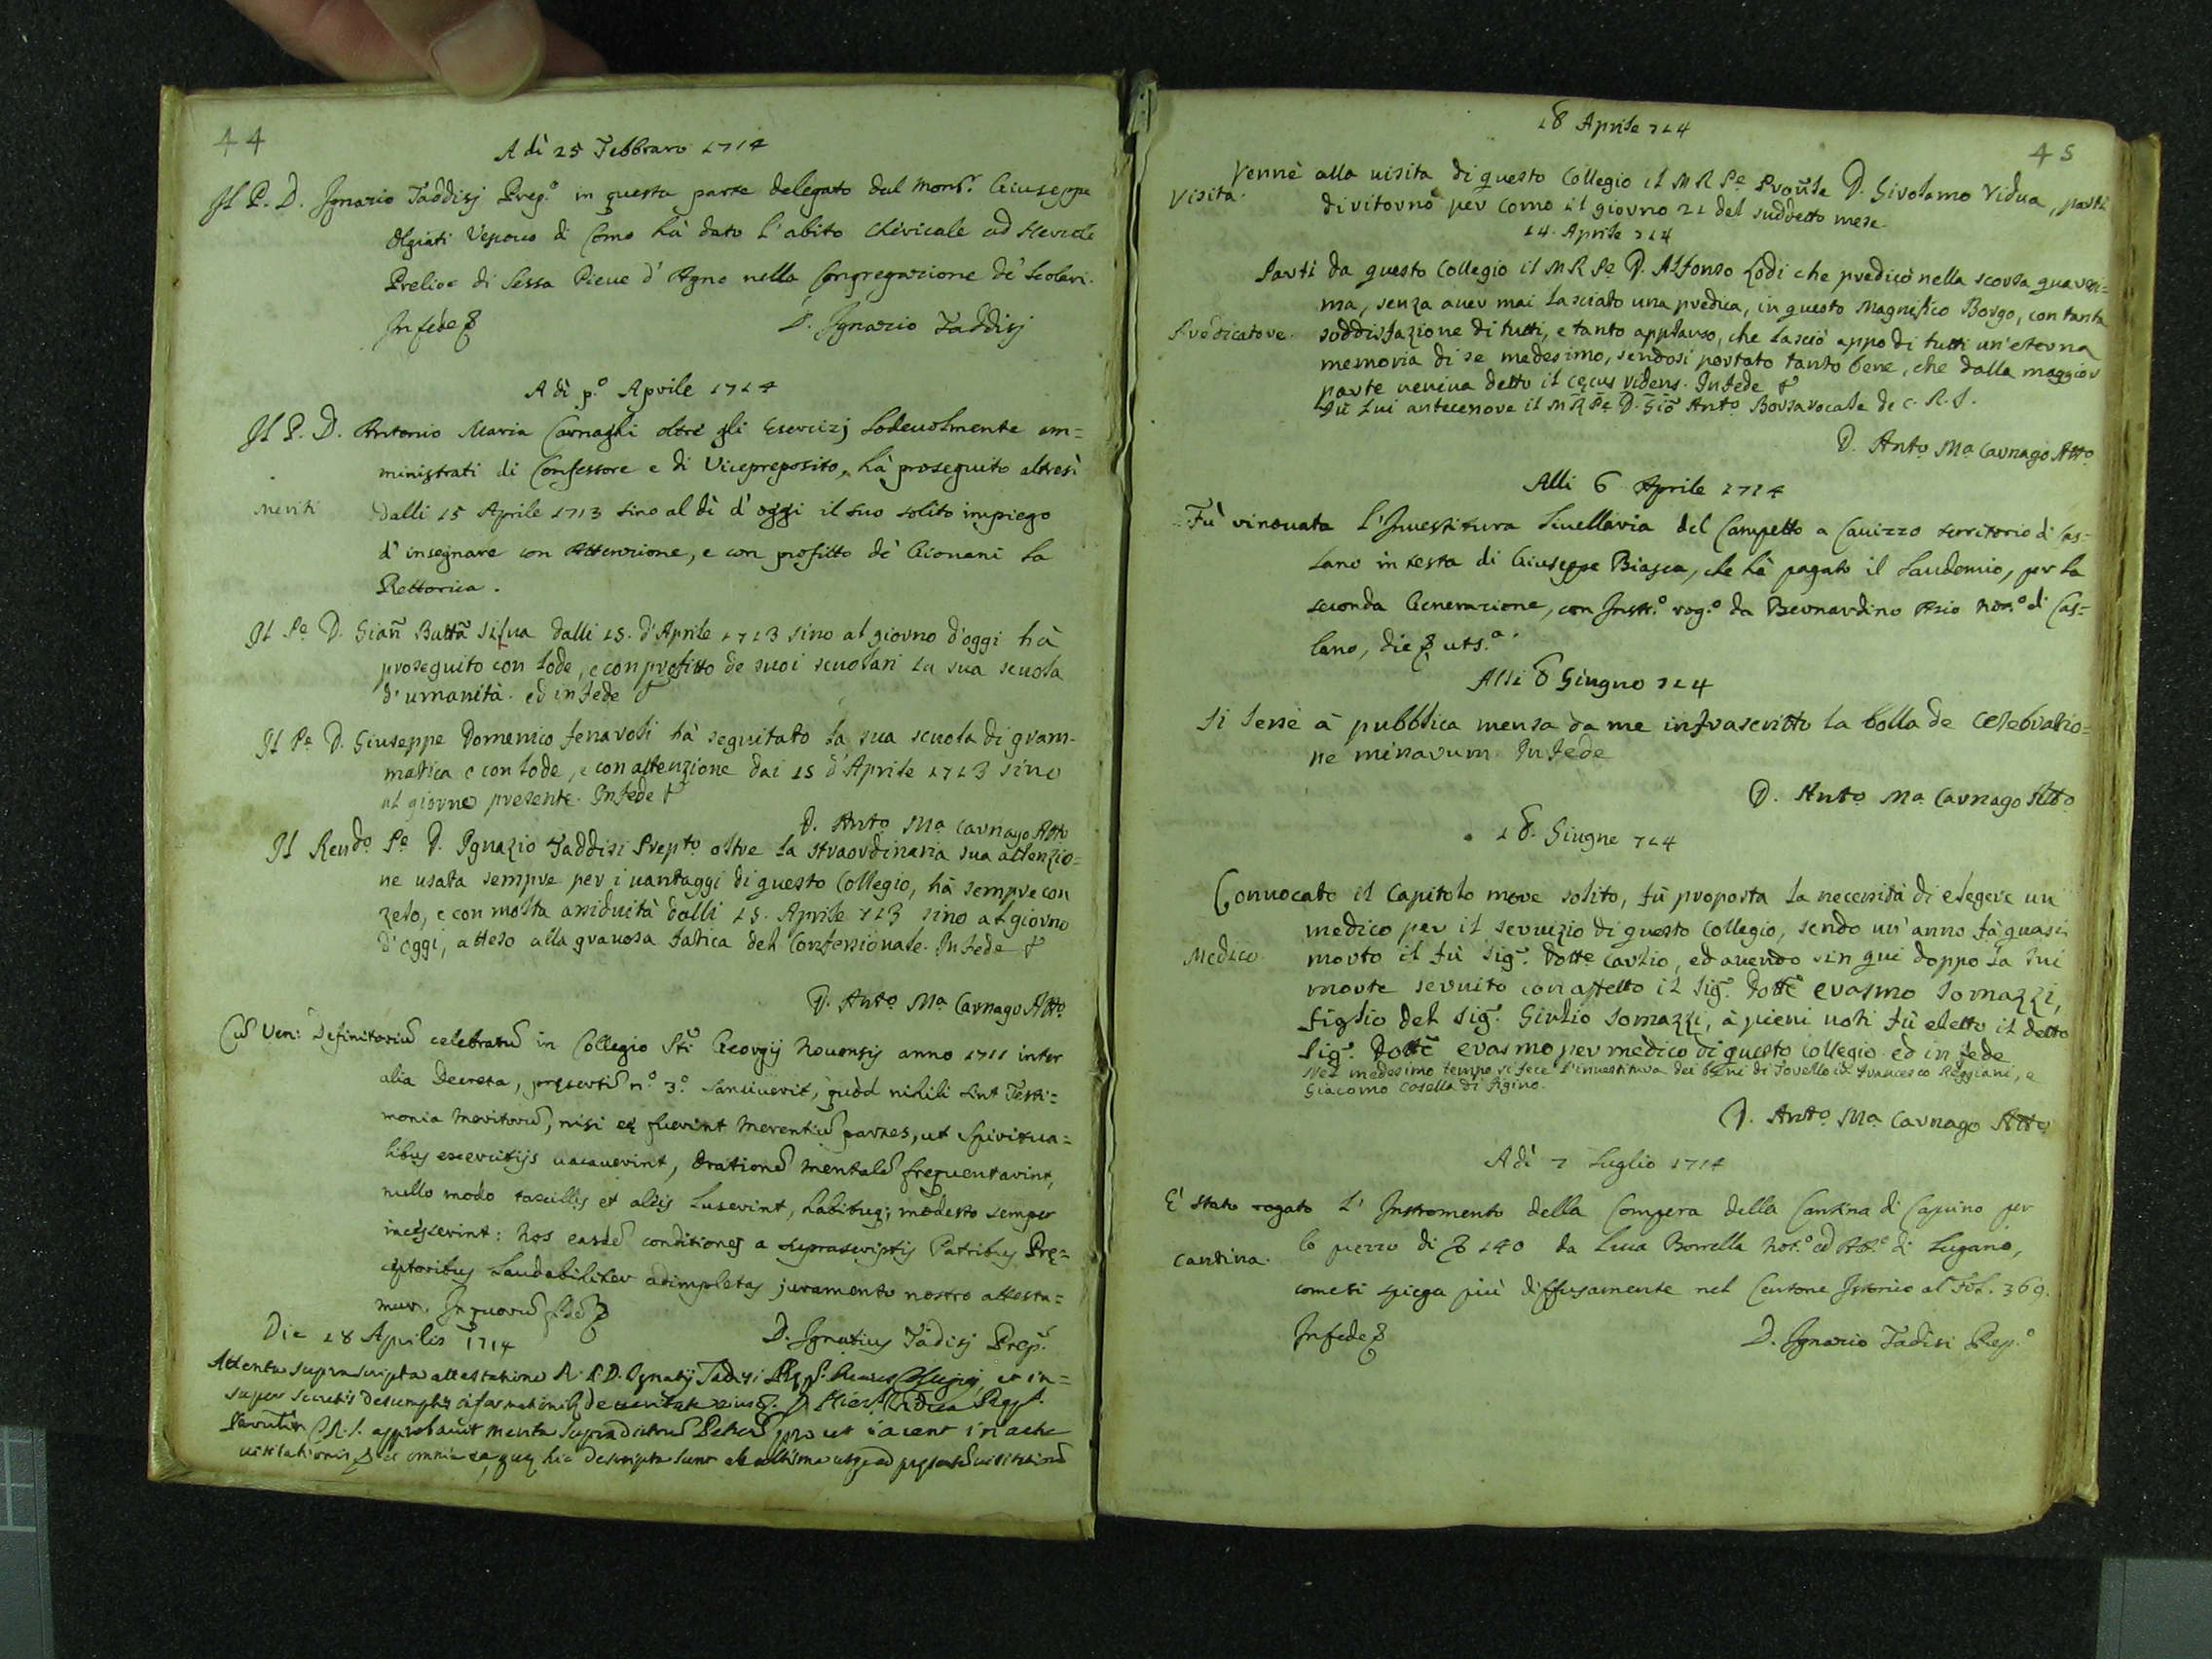 44
A dì 25 Febbraro 1714
Il P. D. Ignazio Taddisj Prep.º in questa parte delegato dal Mons.r Giuseppe
Olgiati Vescouo di Como hà dato l'abito chiricale ad Hercole
di Sessa Pieue d'Agno nella Congregazione de' Scolari.
In fede &
D. Ignazio Taddisj
A dì p.º Aprile 1714
Il P. D. Antonio Maria Carnaghi oltre gli Esercizj lodeuolmente am=
ministrati di Confessore e di Vicepreposito, hà proseguito altresì
Meriti
dalli 15 Aprile 1713 sino al dì d'oggi il suo solito impiego
d'insegnare con Attenzione, e con profitto de' Giouani la
Rettorica.
Il Pe D. Giañ Battã Silua dalli 15. d'Aprile 1713 sino al giorno d'oggi hà
proseguito con lode, e con profitto de suoi scuolari la sua scuola
d'umanità. ed in fede &
Il Pe D. Giuseppe Domenico Fenaroli hà seguitato la sua scuola di gram-
matica e con lode, e con attenzione dai 15 d'Aprile 1713 sino
al giorno presente. In fede &
D. Anto Ma Carnago Atto
Il Reudo Pe D. Ignazio Taddisi Prepto oltre la straordinaria sua attenzio=
ne usata sempre per i uantaggi di questo Collegio, hà sempre con
zelo, e con molta assiduità dalli 15. Aprile 713 sino al giorno
d'oggi, atteso alla grauosa fatica del Confessionale. In fede &
D. Anto Ma Carnago Atto
Cũ Ven: Definitoriũ celebratũ in Collegio Sti Georgij Nouensis anno 1711 inter
alia Decreta, pręsertĩ nº 3.º sanciuerit, quòd nihili sint Testi=
monia Meritorũ, nisi eę fuerint Merentiũ partes, ut Spiritua=
libus exercitijs uacauerint, Orationẽ Mentalẽ frequentarint,
nullo modo taxillis et aleis luserint, habituq; modesto semper
incesserint: Nos easdẽ conditiones a suprascriptis Patribus Prę=
ceptoribus Laudabiliter adimpletas juramento nostro attesta=
mur. In quorũ fidẽ &
Die 18 Aprilis 1714
D. Ignatius Tadisj Prep.
Attenta suprascripta attestatione R. P. D. Ignatij Tadisi Pręp. huius Collegij, et in=
super secretis desumptis informationib de ueritate eius. D. Hier. Vidua Pręp.
Prouлis C.R.S. approbauit merita supradictorũ Patrũ prout iacent in actu
uisitationis, & omnia ea, quę hic descripta sunt ab ultima usq ad pręsentẽ uisitationẽ
45
18 Aprile 714
Venne alla uisita di questo Collegio il M R Pe Proũle D. Girolamo Vidua, partì
Visita.
di ritorno per Como il giorno 21 del suddetto mese.
14. Aprile 714
Partì da questo Collegio il M R Pe D. Alfonso Lodi che predicò nella scorsa quaresi=
ma, senza auer mai lasciato una predica, in questo Magnifico Borgo, con tanta
Predicatore.
soddisfazione di tutti, e tanto applauso, che lasciò appo di tutti un'eterna
memoria di se medesimo, sendosi portato tanto bene, che dalla maggior
parte ueniua detto il cęcus videns. In fede &
Fù lui antecessore il M R Pe D. Giõ Anto Borsa vocale de C. R. S.
D. Anto Ma Carnago Atto
Alli 6 Aprile 1714
Fù rinouata l'Inuestitura Liuellaria del Campetto a Cauizzo territorio di Cas=
lano in testa di Giuseppe Biasca, che hà pagato il Laudemio, per la
seconda Generazione, con Instr.º rog.º da Bernardino Asio Not.º di Cas=
lano, die & uts.ª
Alli 8 Giugno 714
Si lesse à pubblica mensa da me infrascritto la bolla de celebratio=
ne missarum. In fede
D. Anto Ma Carnago Atto
18. Giugne 714
Conuocato il Capitolo more solito, fù proposta la necessità di elegere un
medico per il seruizio di questo Collegio, sendo un'anno fà quasi
Medico.
morto il fù Sig.r Dotte Carlio, ed auendo sin qui doppo la sui
morte seruito con affetto il Sig.r Dotte Erasmo Somazzi,
figlio del Sig.r Giulio Somazzi, à pieni uoti fù eletto il detto
Sig.r Dotte Erasmo per medico di questo Collegio. ed in fede
Nel medesimo tempo si fece l'inuestitura dei beni di Torello in Francesco Reggiani, e
Giacomo Casella di Figino.
D. Anto Ma Carnago Atto
A dì 7 Luglio 1714
E' stato rogato l'Instromento della Compera della Cantina di Capino per
Cantina.
lo prezzo di & 140 da Luca Borrella Not.º ed di Lugano,
comesi spiega più diffusamente nel Centone Istorico al Fol. 369.
In fede &
D. Ignazio Tadisi Prep.º